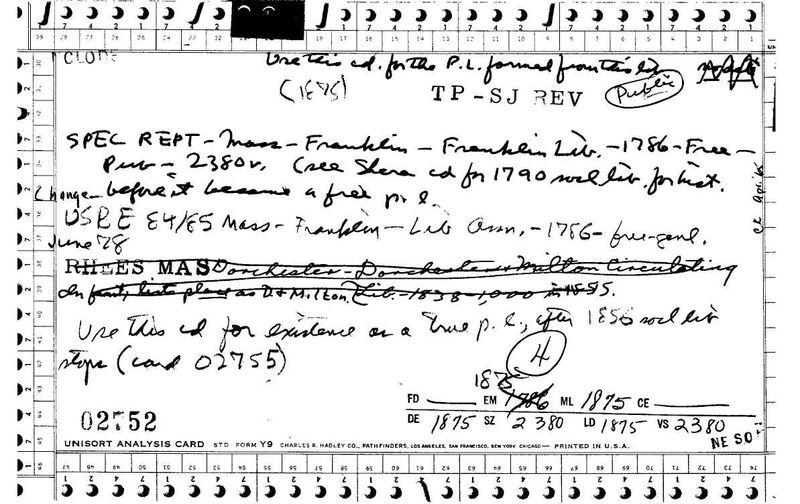 CLODE
Use this cd. for the P.L. formed from this lib
(1875)
TP-SJ REV
Public
SPEC REPT - Mass - Franklin - Franklin Lib. - 1786 - Free -
Pub - 2380v. (see Shera cd for 1790 socl lib. for hist.
Change before it became a free p.l.
USBE 84/85 Mass - Franklin - Lib Assn. - 1786 - free-genl.
June 78
RHEES MAS Dorchester - Dorchester & Milton Circulating
Lib. - 1838 - 1,000 in 1855.
Use this cd for existence as a true p.l., after 1856 socl lib
stops (card 02755)
4
1875
FD EM 1786 ML 1875 CE
DE 1875 SZ 2380 LD 1875 VS 2380
NE SO
02752
UNISORT ANALYSIS CARD STD FORM Y9 CHARLES R. HADLEY CO., PATHFINDERS, LOS ANGELES, SAN FRANCISCO, NEW YORK CHICAGO — PRINTED IN U.S.A.